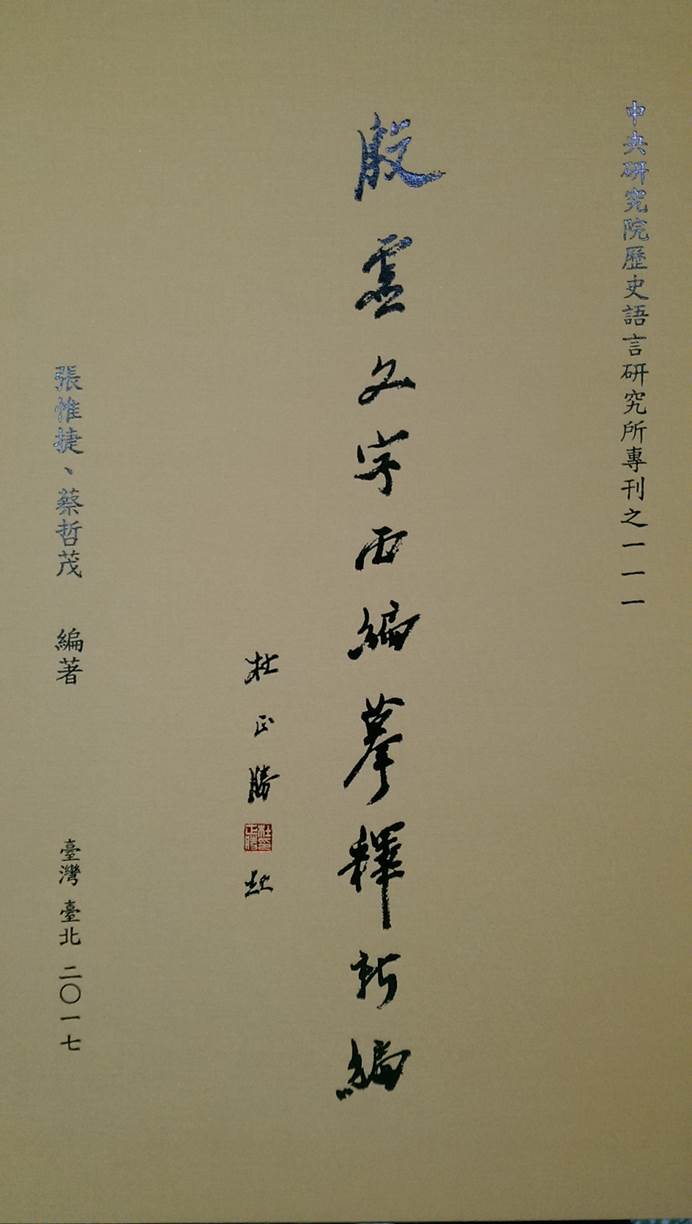 中央研究院歷史語言研究所專刊之一一一
殷虛文字丙編摹釋新編
杜正勝 題
張惟捷、蔡哲茂 編著
臺灣 臺北 二〇一七